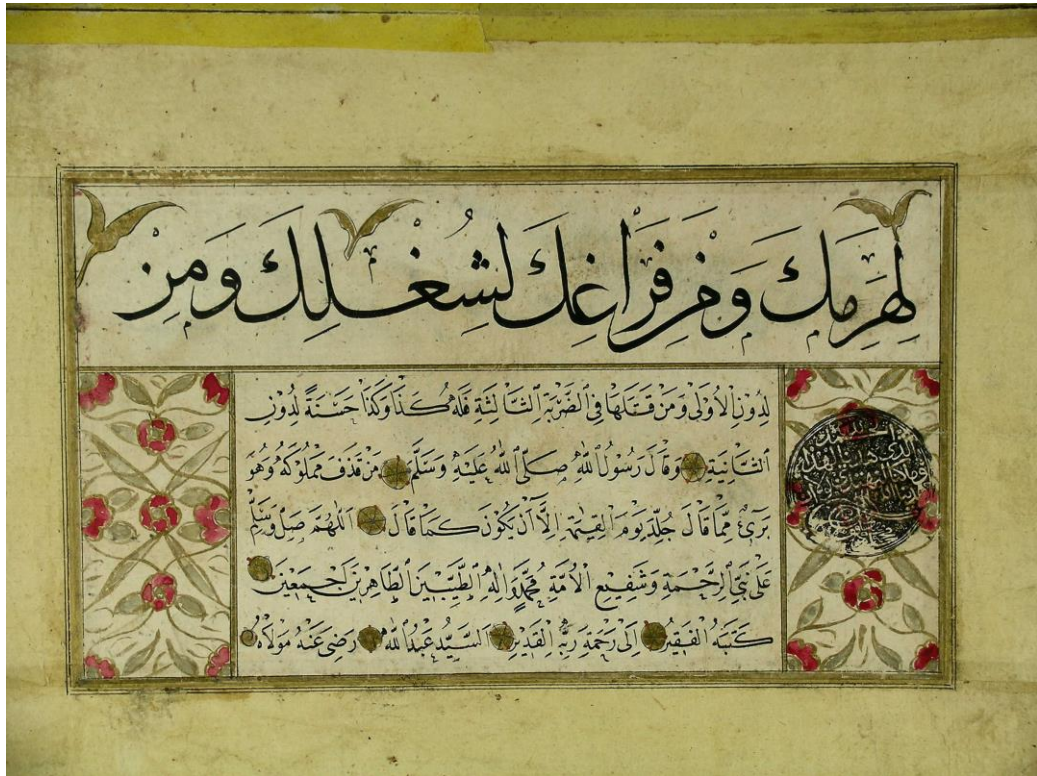 لِهَرَمِكَ وَمِنْ فَرَاغِكَ لِشُغْلِكَ وَمِنْ
لِدُونِ الْأُولَى وَمَنْ قَتَلَهَا فِي الضَّرْبَةِ الثَّالِثَةِ فَلَهُ كَذَا وَكَذَا حَسَنَةً لِدُونِ
الثَّانِيَةِ وَقَالَ رَسُولُ اللَّهِ صَلَّى اللَّهُ عَلَيْهِ وَسَلَّمَ مَنْ قَذَفَ مَمْلُوكَهُ وَهُوَ
بَرِيءٌ مِمَّا قَالَ جُلِدَ يَوْمَ الْقِيمَةِ إِلَّا أَنْ يَكُونَ كَمَا قَالَ اللَّهُمَّ صَلِّ وَسَلِّمْ
عَلَى نَبِيِّ الرَّحْمَةِ وَشَفِيعِ الْأُمَّةِ مُحَمَّدٍ وَآلِهِ الطَّيِّبِينَ الطَّاهِرِينَ أَجْمَعِينَ
كَتَبَهُ الْفَقِيرُ إِلَى رَحْمَةِ رَبِّهِ الْقَدِيرِ السَّيِّدُ عَبْدُ اللَّهِ رَضِيَ عَنْهُ مَوْلَاهُ